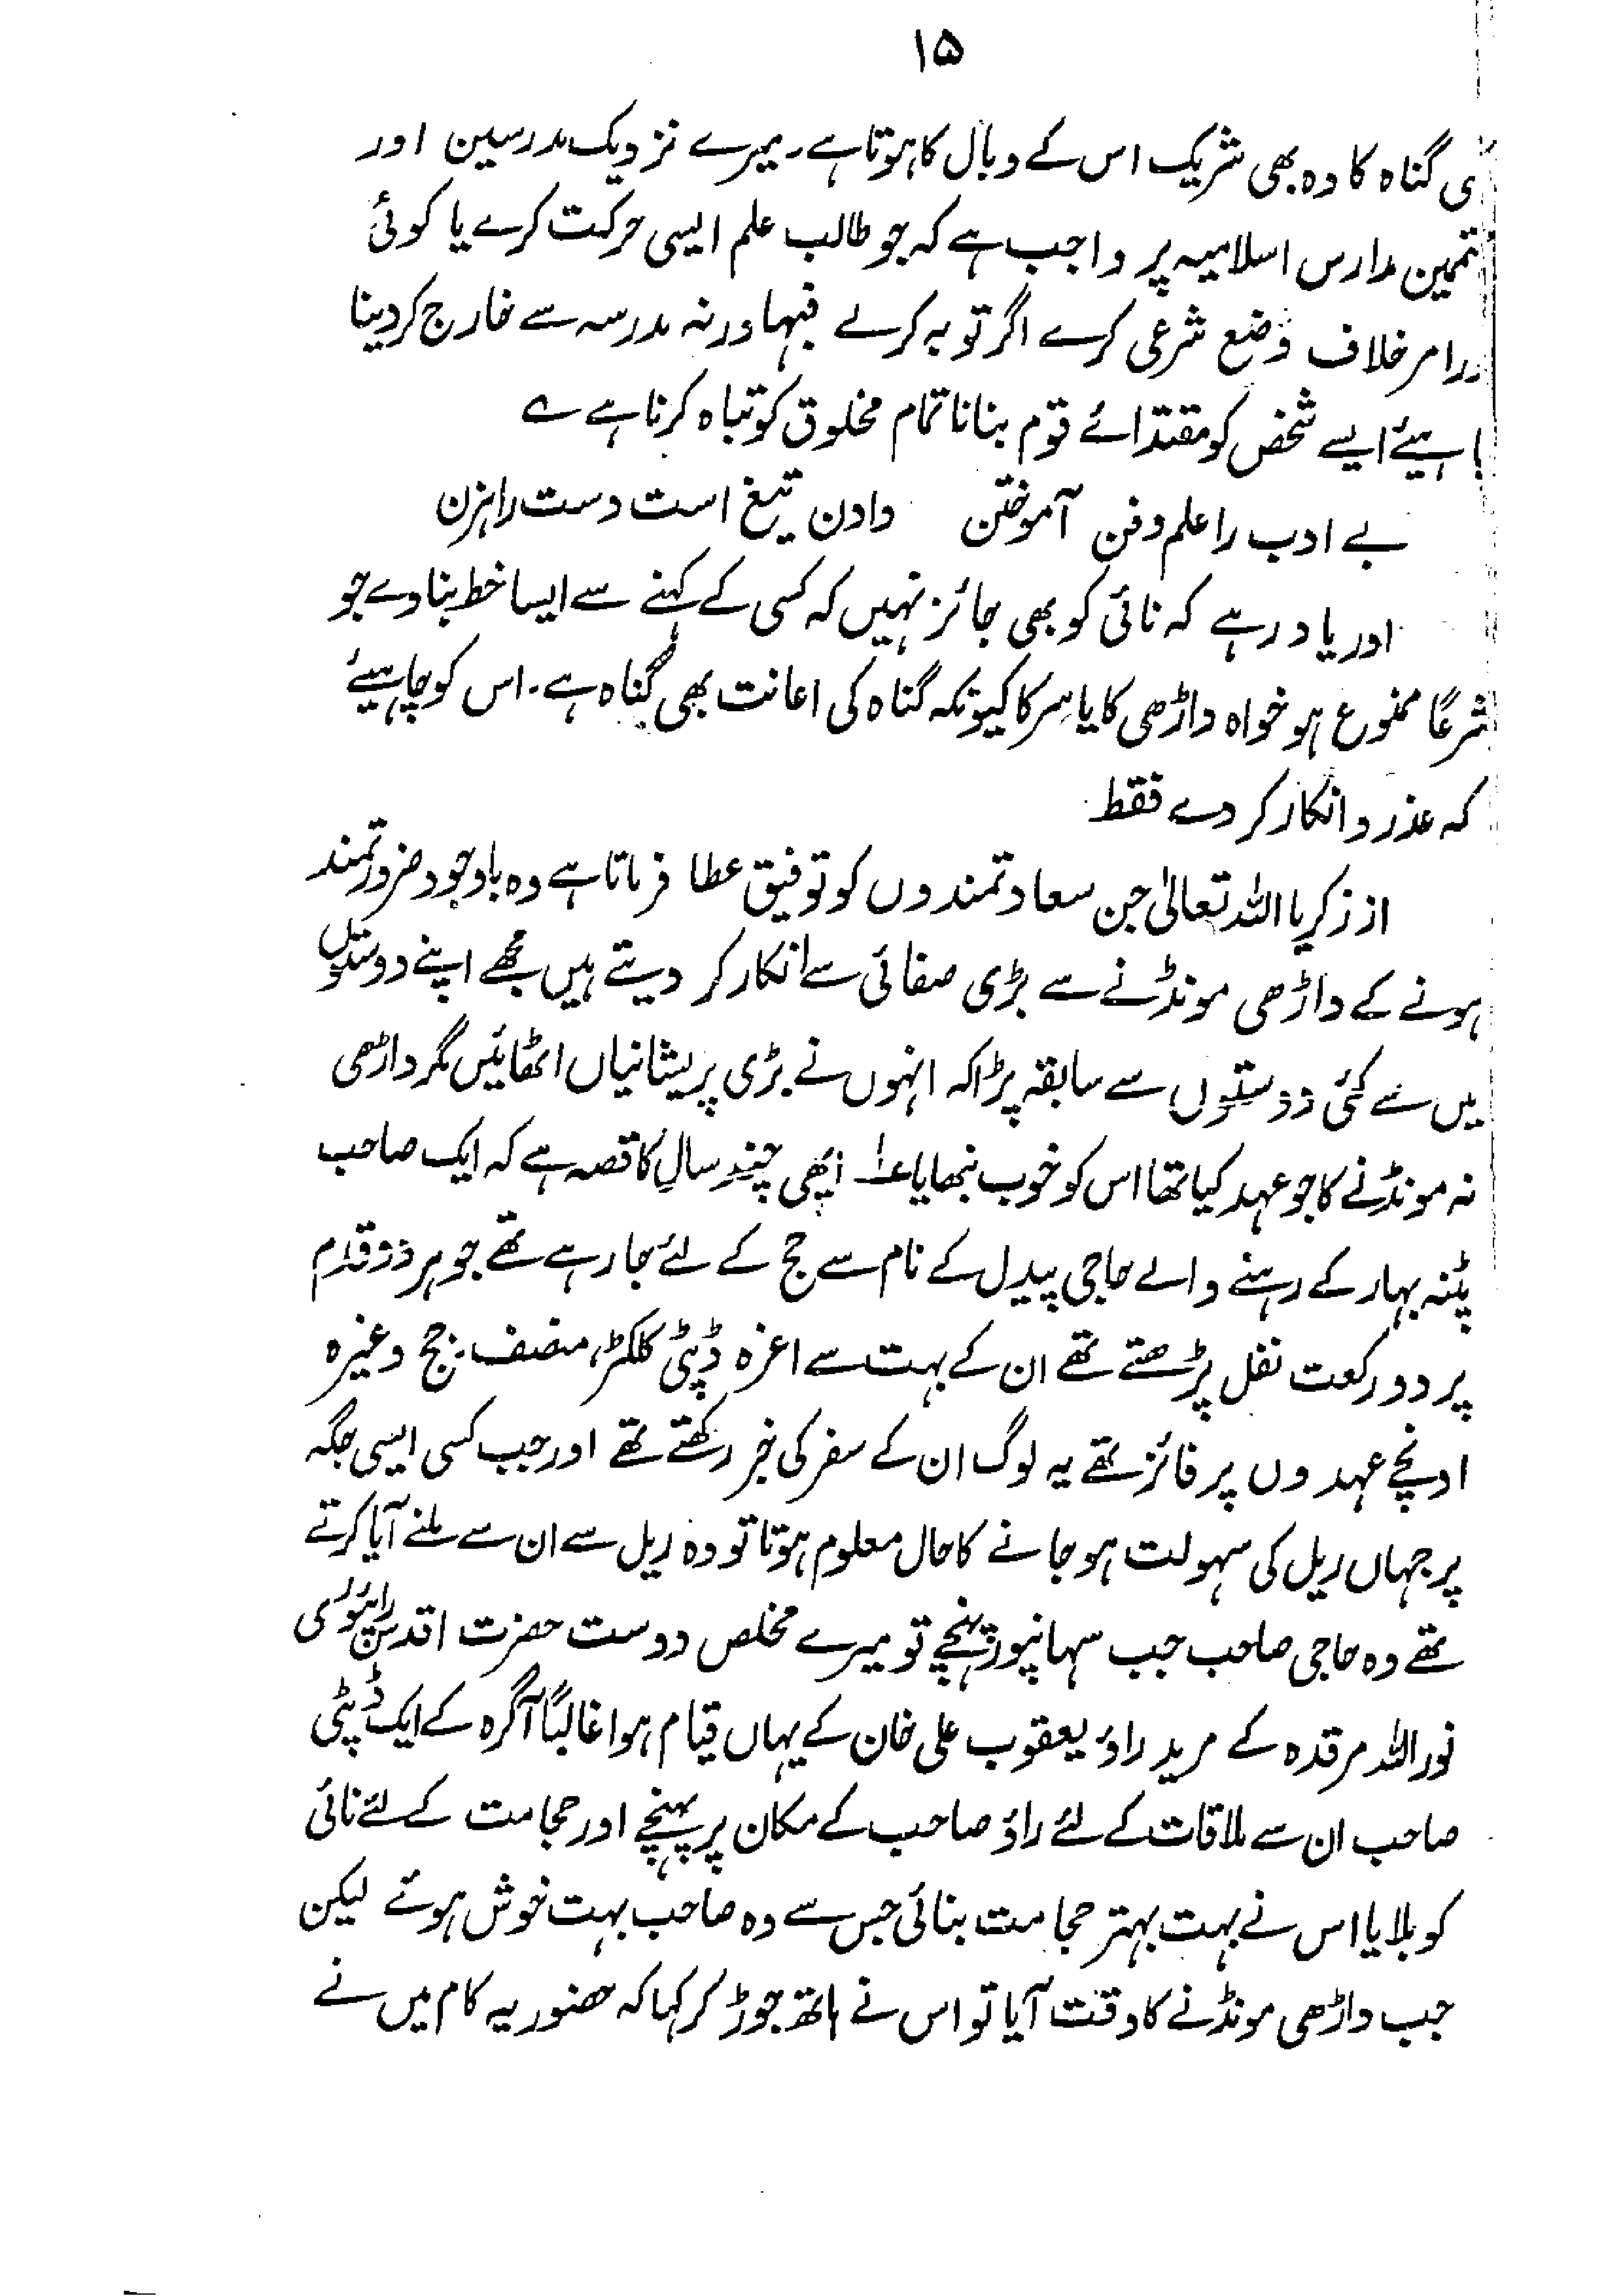 ۱۵
ی گناہ کا وہ بھی شریک اس کے وبال کا ہوتا ہے۔ میرے نزدیک مدرسین اور
تممین مدارس اسلامیہ پر واجب ہے کہ جو طالب علم ایسی حرکت کرے یا کوئی
امر خلاف وضع شرعی کرے اگر توبہ کرلے فبہا ورنہ مدرسہ سے خارج کر دینا
اہیئے ایسے شخص کو مقتدائے قوم بنانا تمام مخلوق کو تباہ کرنا ہے ؎
بے ادب را علم و فن آموختن دادن تیغ است دست راہزن
اور یاد رہے کہ نائی کو بھی جائز نہیں کہ کسی کے کہنے سے ایسا خط بنا وے جو
شرعاً ممنوع ہو خواہ داڑھی کا یا سر کا کیونکہ گناہ کی اعانت بھی گناہ ہے۔ اس کو چاہیئے
کہ عذر و انکار کر دے فقط
از زکریا اللہ تعالیٰ جن سعادتمندوں کو توفیق عطا فرماتا ہے وہ باوجود ضرورتمند
ہونے کے داڑھی مونڈنے سے بڑی صفائی سے انکار کر دیتے ہیں مجھے اپنے دوستوں
میں سے کئی دوستوں سے سابقہ پڑا کہ انہوں نے بڑی پریشانیاں اٹھائیں مگر داڑھی
نہ مونڈنے کا جو عہد کیا تھا اس کو خوب نبھایا ۱؎ ابھی چند سال کا قصہ ہے کہ ایک صاحب
پٹنہ بہار کے رہنے والے حاجی پیدل کے نام سے حج کے لئے جا رہے تھے جو ہر دو قدم
پر دو رکعت نفل پڑھتے تھے ان کے بہت سے اعزہ ڈپٹی کلکٹر، منصف، جج وغیرہ
اونچے عہدوں پر فائز تھے یہ لوگ ان کے سفر کی خبر رکھتے تھے اور جب کسی ایسی جگہ
پر جہاں ریل کی سہولت ہو جانے کا حال معلوم ہوتا تو وہ ریل سے ان سے ملنے آیا کرتے
تھے وہ حاجی صاحب جب سہانپور پہنچے تو میرے مخلص دوست حضرت اقدس رائپوری
نور اللہ مرقدہ کے مرید راؤ یعقوب علی خان کے یہاں قیام ہوا غالباً آگرہ کے ایک ڈپٹی
صاحب ان سے ملاقات کے لئے راؤ صاحب کے مکان پر پہنچے اور حجامت کے لئے نائی
کو بلایا اس نے بہت بہتر حجامت بنائی جس سے وہ صاحب بہت خوش ہوئے لیکن
جب داڑھی مونڈنے کا وقت آیا تو اس نے ہاتھ جوڑ کر کہا کہ حضور یہ کام میں نے